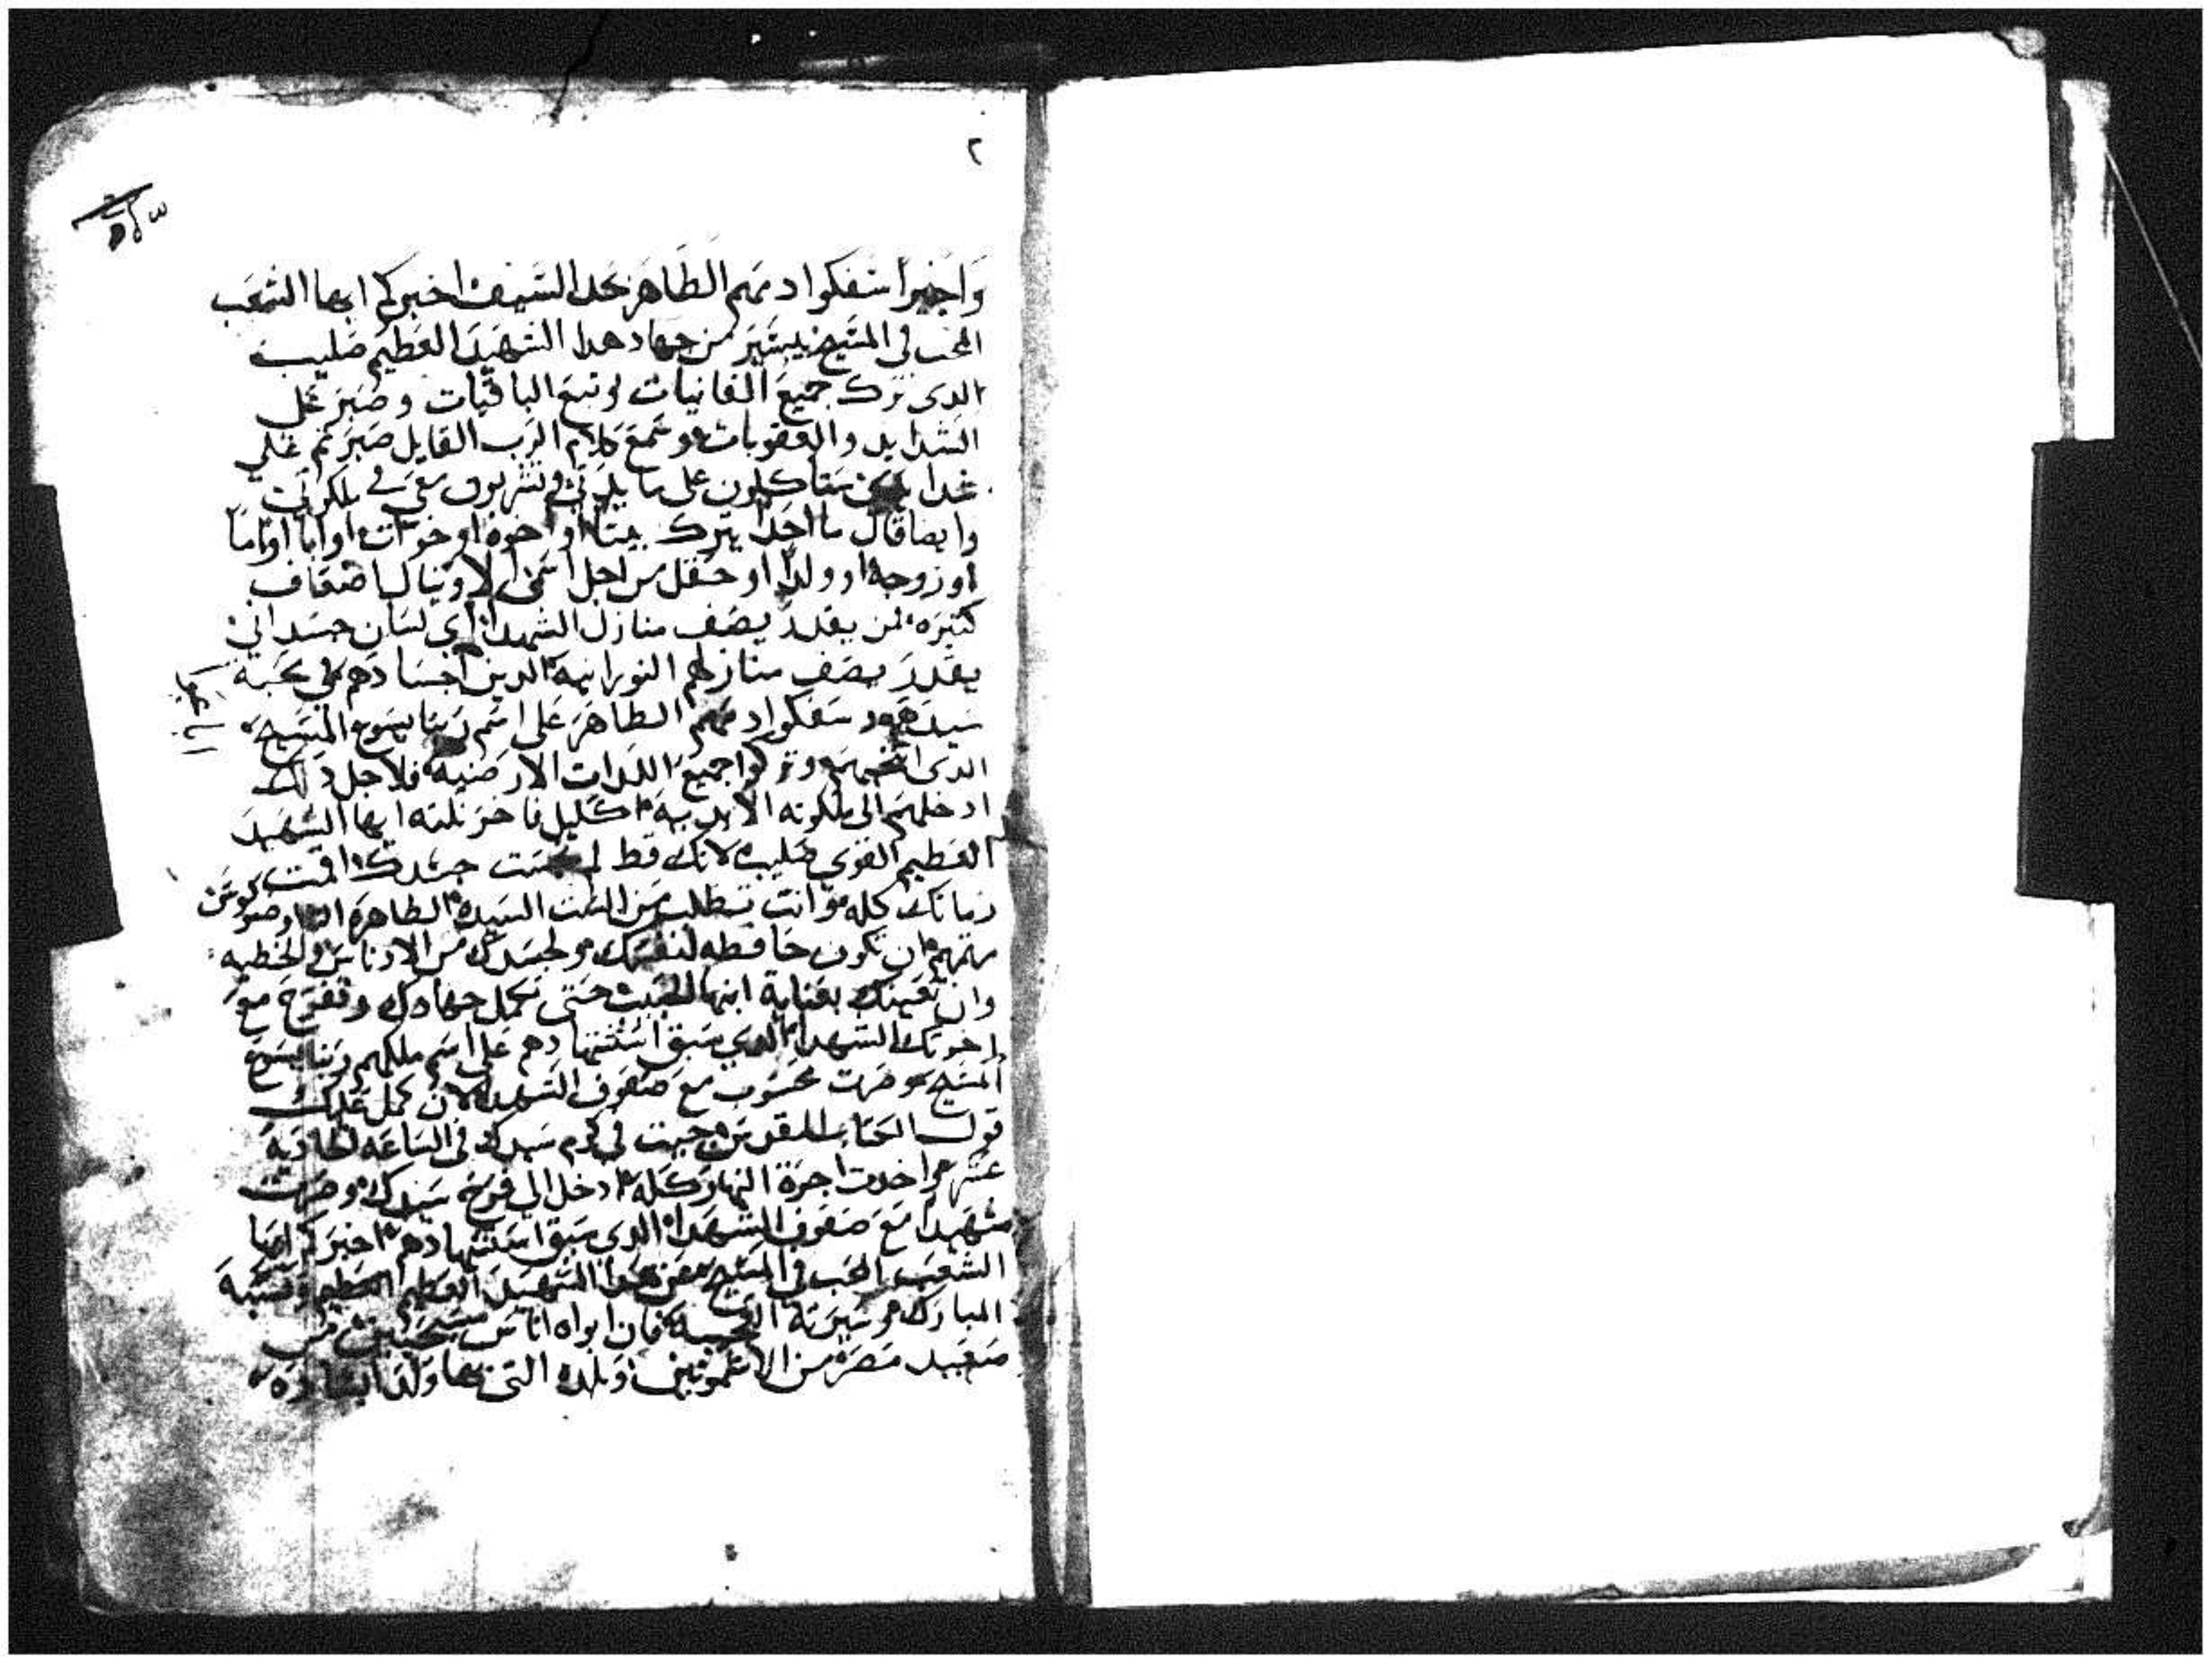 ٢
واخيرا سفكوا دمهم الطاهر بحد السيف اخبركم ايها الشعب
المحب في المسيح بيسير من جهاد هدا الشهيد العظيم صليب
الدى ترك جميع الفانيات وتبع الباقيات وصبر على
الشدايد والعقوبات وسمع كلام الرب القايل صبرتم على
تاكلون على مايدتى وتشربون معى فى ملكوتى
وايضا قال ما احد يترك بيتا او اخوة او خوات او ابا او اما
او زوجة او ولدا او حقل من اجل اسمى الا وينال اضعاف
كتيره من يقدر يصف منازل الشهدا اى لسان جسدانى
يقدر يصف منازلهم النورانيه الدين اجسادهم فى محبة
سيدهم وسفكوا دمهم الطاهر على اسم ربنا يسوع المسيح
الدى وتركوا جميع اللدات الارضيه فلاجل دلك
ادخلهم الى ملكوته الابديه اكليل فاخر نلته ايها الشهيد
العظيم القوى صليب لانك قط جسدك اقمت
زمانك كله وانت تطلب من الست السيده الطاهره
مرتمريم ان تكون حافظه لنفسك ولجسدك من الادناس والخطيه
وان تعينك بعناية ابنها الحبيب حتى تكمل جهادك وتفرح مع
اخوتك الشهدا الدى سبق استشهادهم على اسم ملكهم ربنا يسوع
المسيح وصرت محسوب مع صفوف الشهدا لان كمل عليك
قول الكتاب المقدس جيت فى كرم سيدك فى الساعه الحاديه
عشر واخدت اجرة النهار كله ادخل الى فرح سيدك وصرت
شهيدا مع صفوف الشهدا الدى سبق استشهادهم اخبركم ايها
الشعب المحب فى المسيح عن هدا الشهيد العظيم
المبارك وسيرته العجيبه كان ابواه اناس مسيحيين من
صعيد مصر من الاشمونين وبلده التى بها ولد